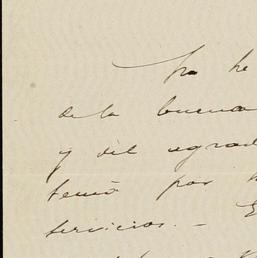 Yo he
de la buena
y del agrad
temó por
servicios. - E